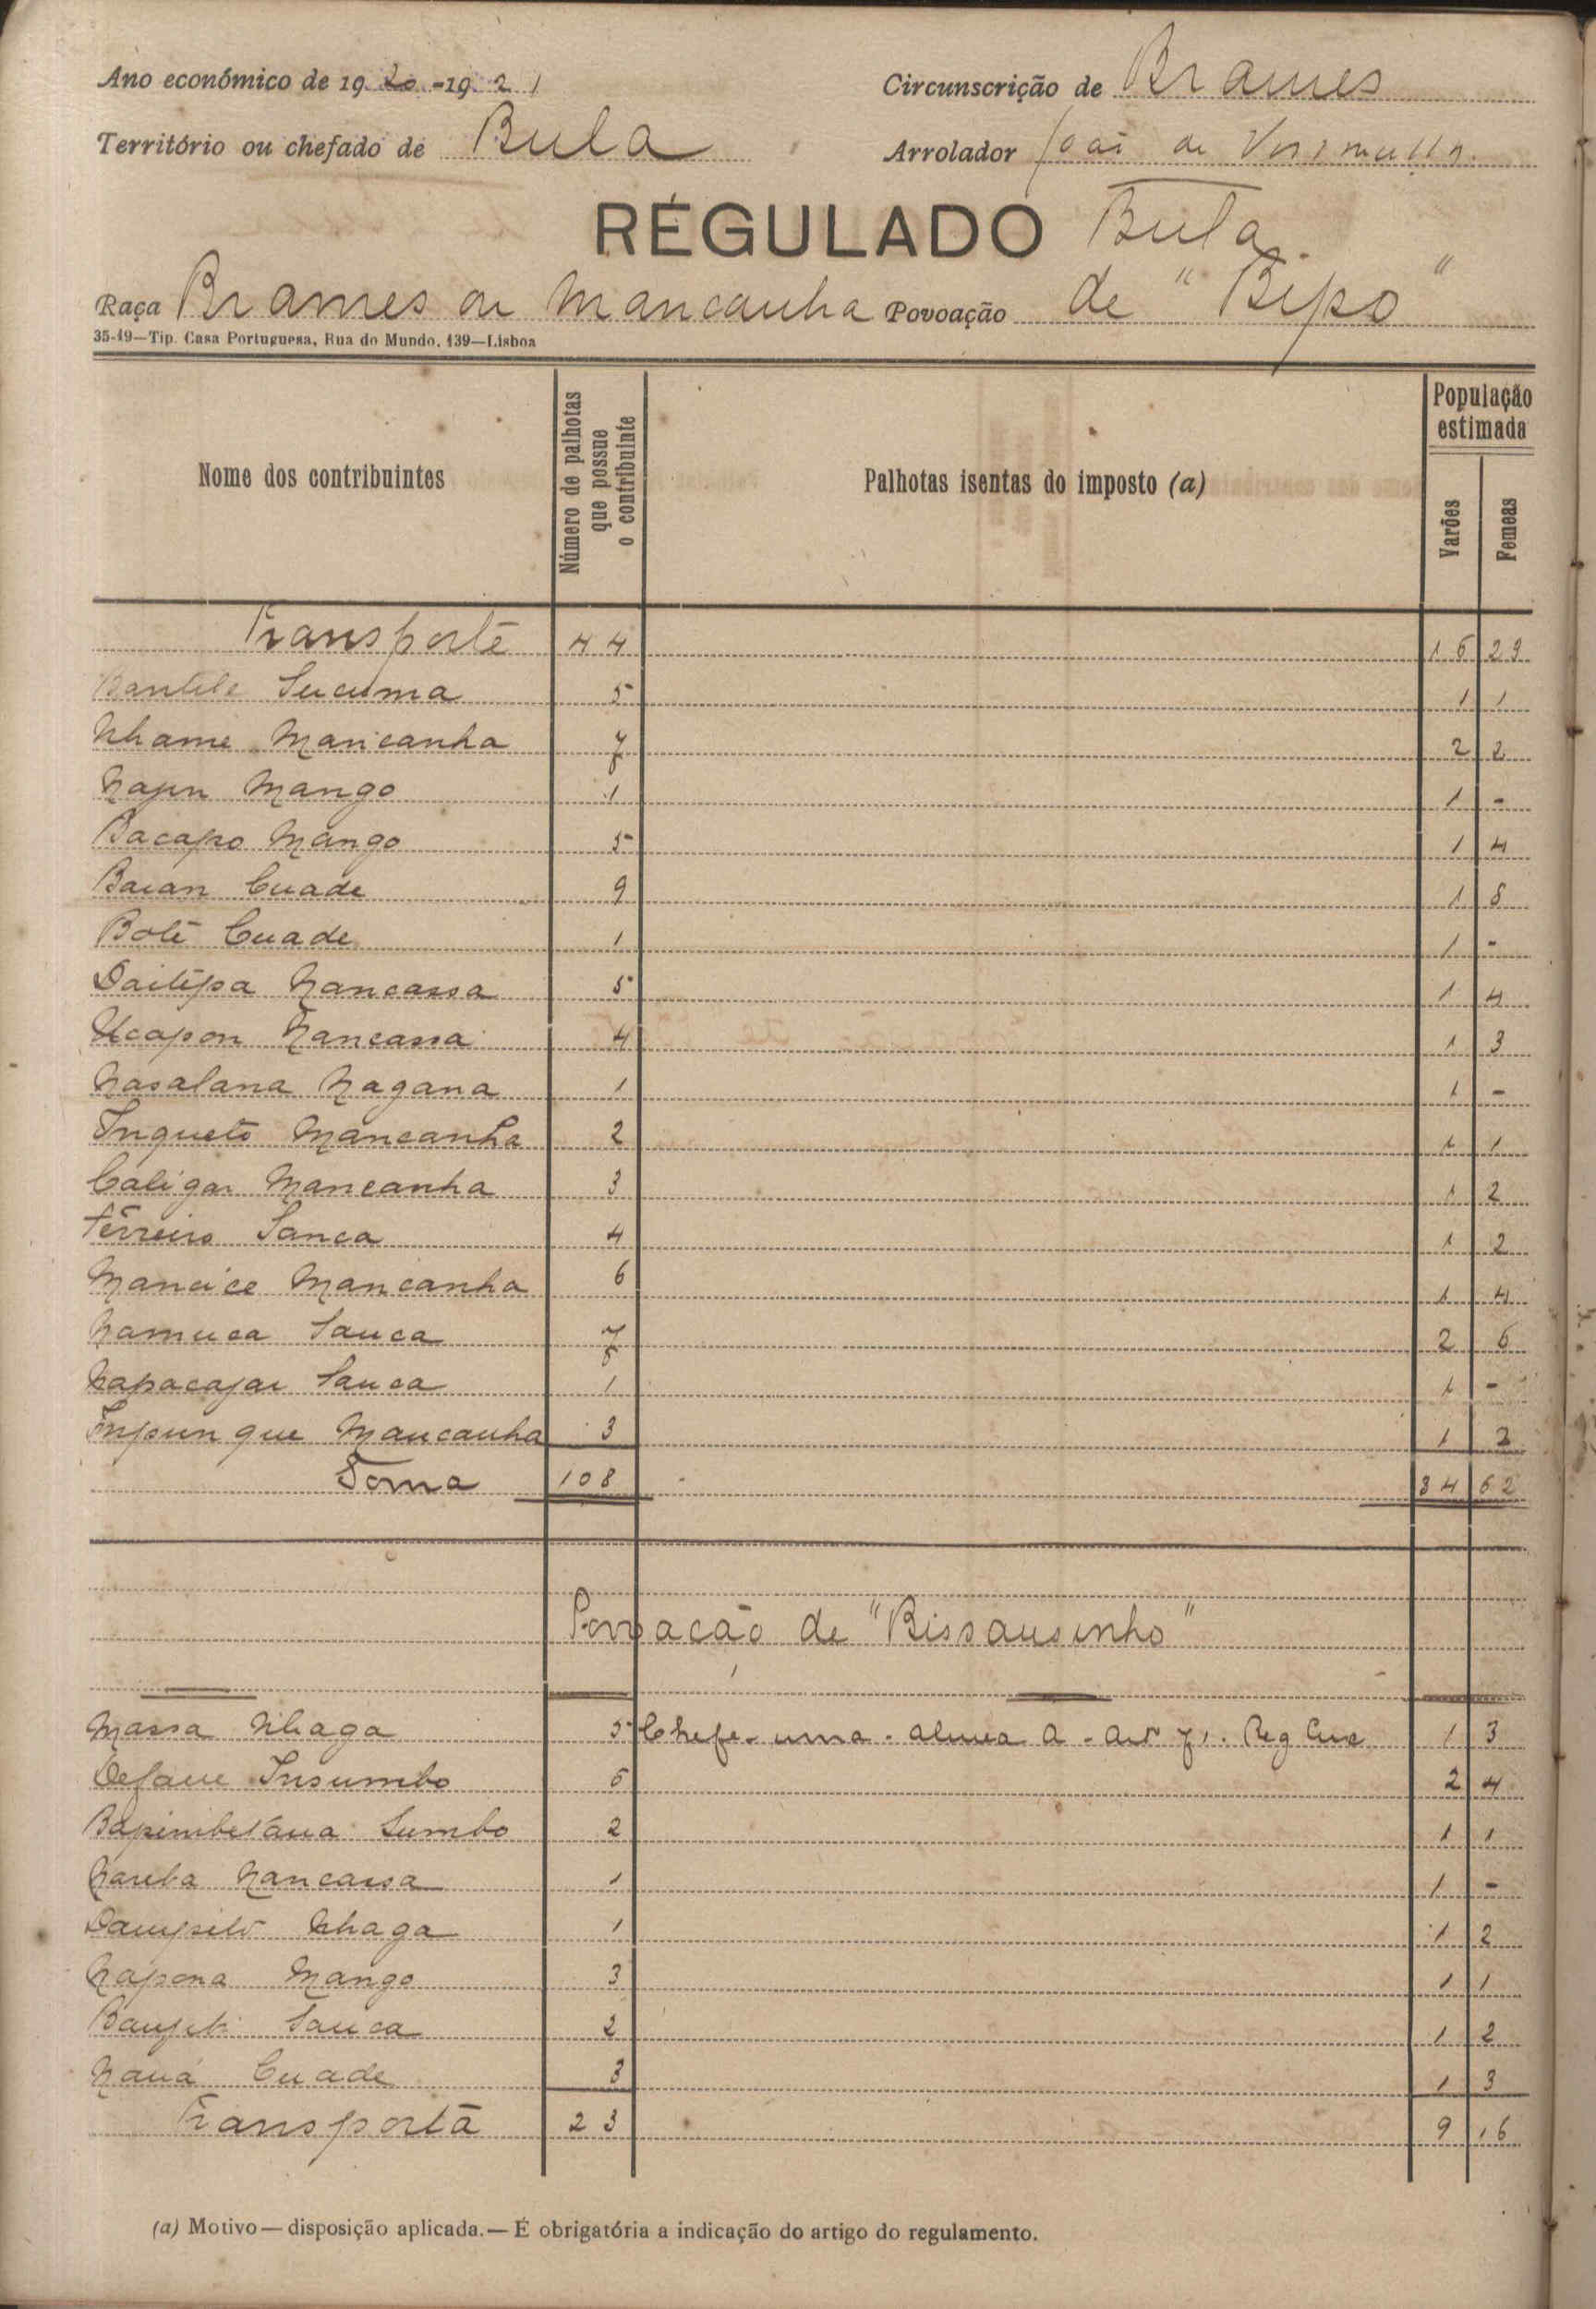 Ano económico de 1920-1921 Circunscrição de Brames
Território ou chefado de Bula Arrolador João de
RÉGULADO Bula
Raça Brames ou Mancanha Povoação de "Bipo"
35-19—Tip. Casa Portuguesa, Rua do Mundo, 139—Lisboa
Nome dos contribuintes
Número de palhotas que possue o contribuinte
Palhotas isentas do imposto (a)
População estimada
Varões
Femeas
Transporte 44 16 29
Bantile Sucuma 5 1 1
Nhame Mancanha 7 2 2
Najin Mango 1 1 -
Bacapo Mango 5 1 4
Baian Cuade 9 1 8
Bolé Cuade 1 1 -
Dailepa Nancassa 5 1 4
Ucapon Nancassa 4 1 3
Nasalana Nagana 1 1 -
Inqueto Mancanha 2 1 1
Caligar Mancanha 3 1 2
Ferreiro Sanca 4 1 2
Mancice Mancanha 6 1 4
Namuca Sanca 7 2 6
Napacajar Sanca 1 1 -
Inpunque Mancanha 3 1 2
Soma 108 34 62
Povoacão de "Bissausinho"
Massa Nhaga 5 Chefe uma - alinea A - art 7,. Reg Circ 1 3
Insumbo 6 2 4
Sumbo 2 1 1
Nareba Nancassa 1 1 -
Nhaga 1 1 2
Napona Mango 3 1 1
Sanca 2 1 2
Nauá Cuade 3 1 3
Transporta 23 9 16
(a) Motivo—disposição aplicada.—É obrigatória a indicação do artigo do regulamento.